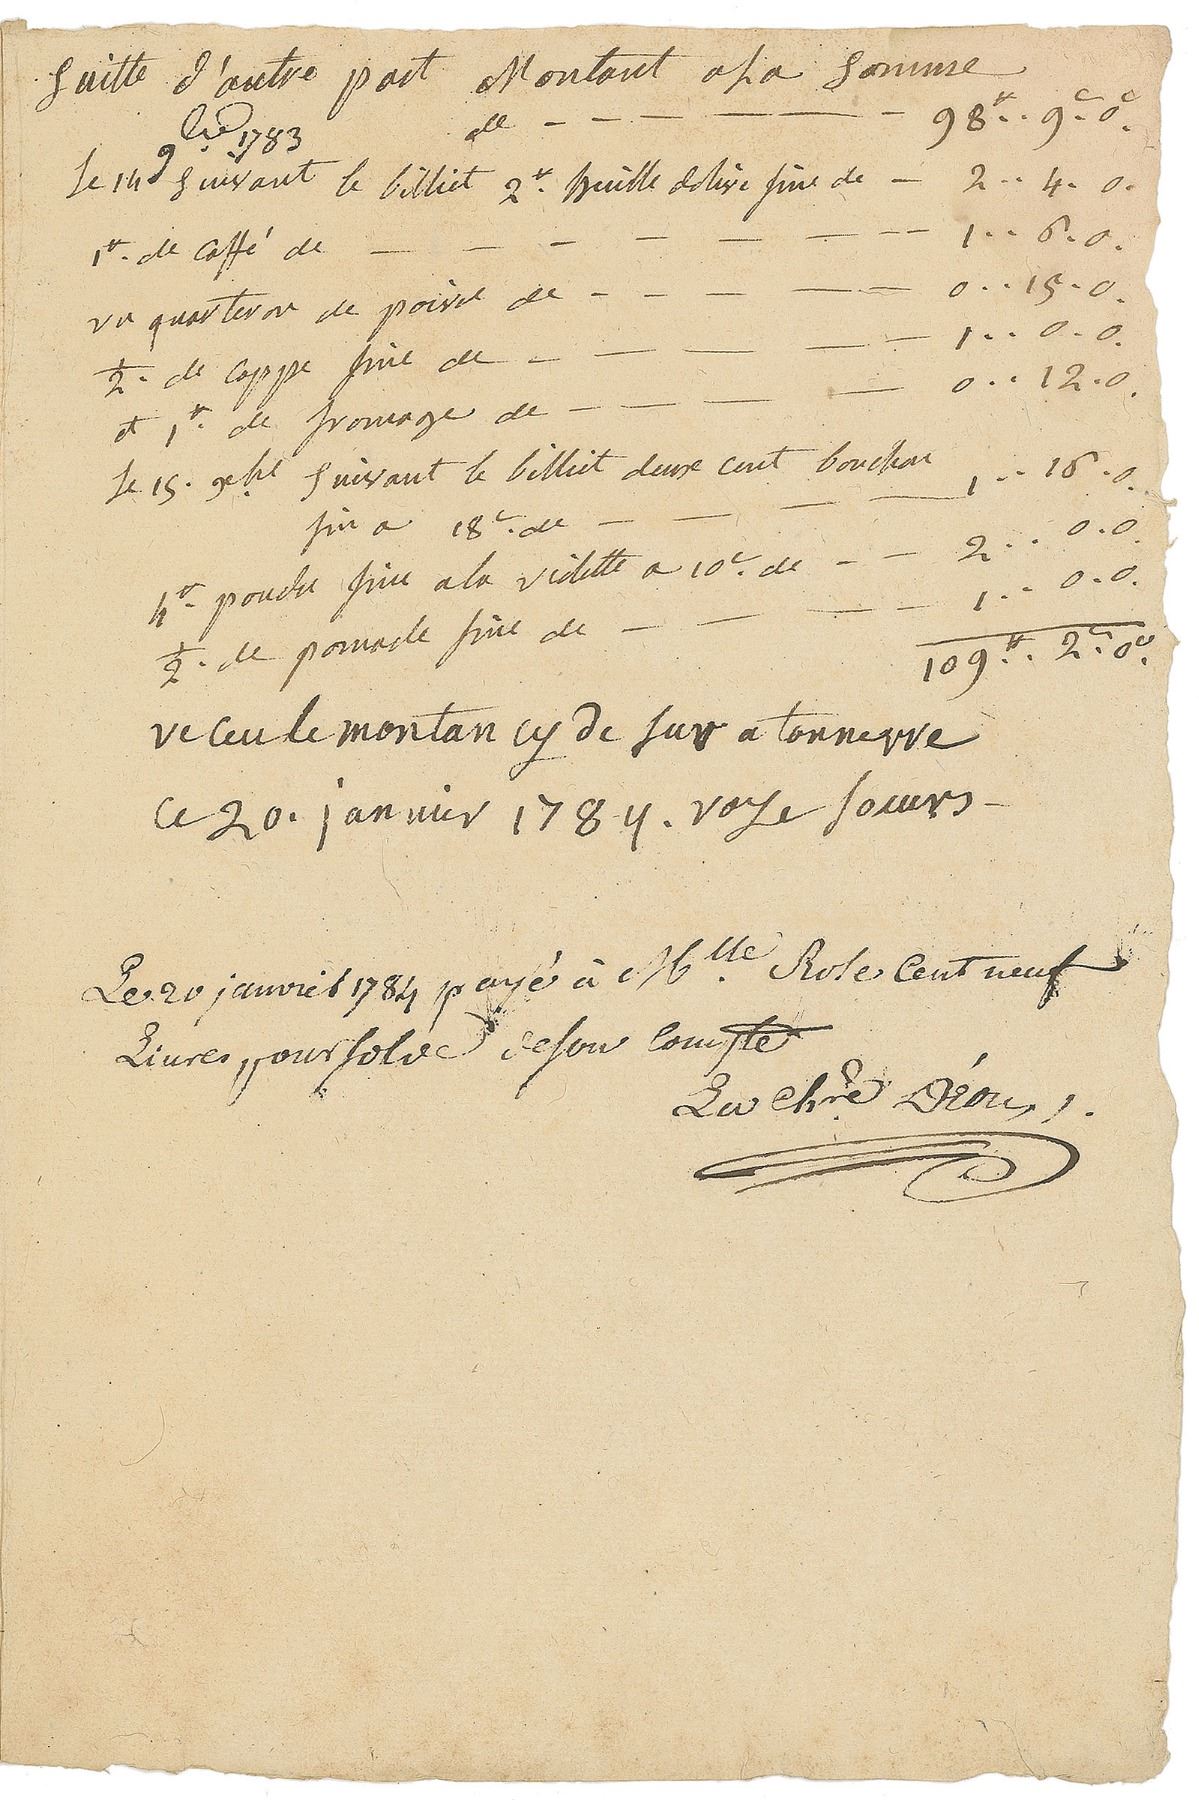 Suitte d'autre part Montant a La Somme
de - - - - - - 98ᵗᵗ.. 9ˢ. 0ᵈ.
9bre 1783
Le 14 Suivant le billiet 2ᵗᵗ. huille dolive fine de - 2.. 4. 0.
1ᵗᵗ. de caffé de - - - - - - - - 1.. 6. 0.
vn quarteron de poivre de - - - - - 0.. 15. 0.
½. de cappe fine de - - - - - - 1.. 0. 0.
et 1ᵗᵗ. de fromage de - - - - - 0.. 12. 0.
Le 15. 9bre Suivant le billiet deux cent bouchon
fin a 18ˢ. de - - - - 1.. 16. 0.
4ᵗᵗ. poudre fine a la violette a 10ˢ. de - - 2.. 0. 0.
½. de pomade fine de - - - - - 1.. 0. 0.
109ᵗᵗ.. 2ˢ. 0ᵈ.
receu le montan cy de sur a tonnerre
ce 20. janvier 1784. roze soeurs -
Le 20 janvier 1784 payé à Mlle. Rose Cent neuf
Livres pour solde de son Compte
La chre. Déon